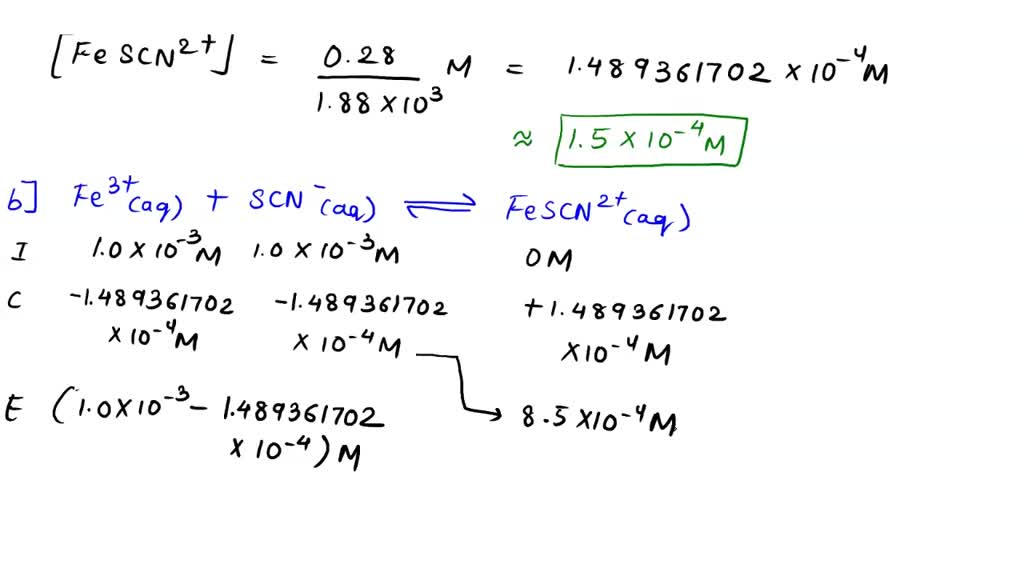 [FeSCN²⁺] = 0.28 / 1.88 × 10³ M = 1.489361702 × 10⁻⁴ M
≈ 1.5 × 10⁻⁴ M
b] Fe³⁺(aq) + SCN⁻(aq) ⇌ FeSCN²⁺(aq)
I 1.0 × 10⁻³ M 1.0 × 10⁻³ M 0 M
C -1.489361702 -1.489361702 +1.489361702
× 10⁻⁴ M × 10⁻⁴ M × 10⁻⁴ M
E (1.0 × 10⁻³ - 1.489361702 8.5 × 10⁻⁴ M
× 10⁻⁴) M